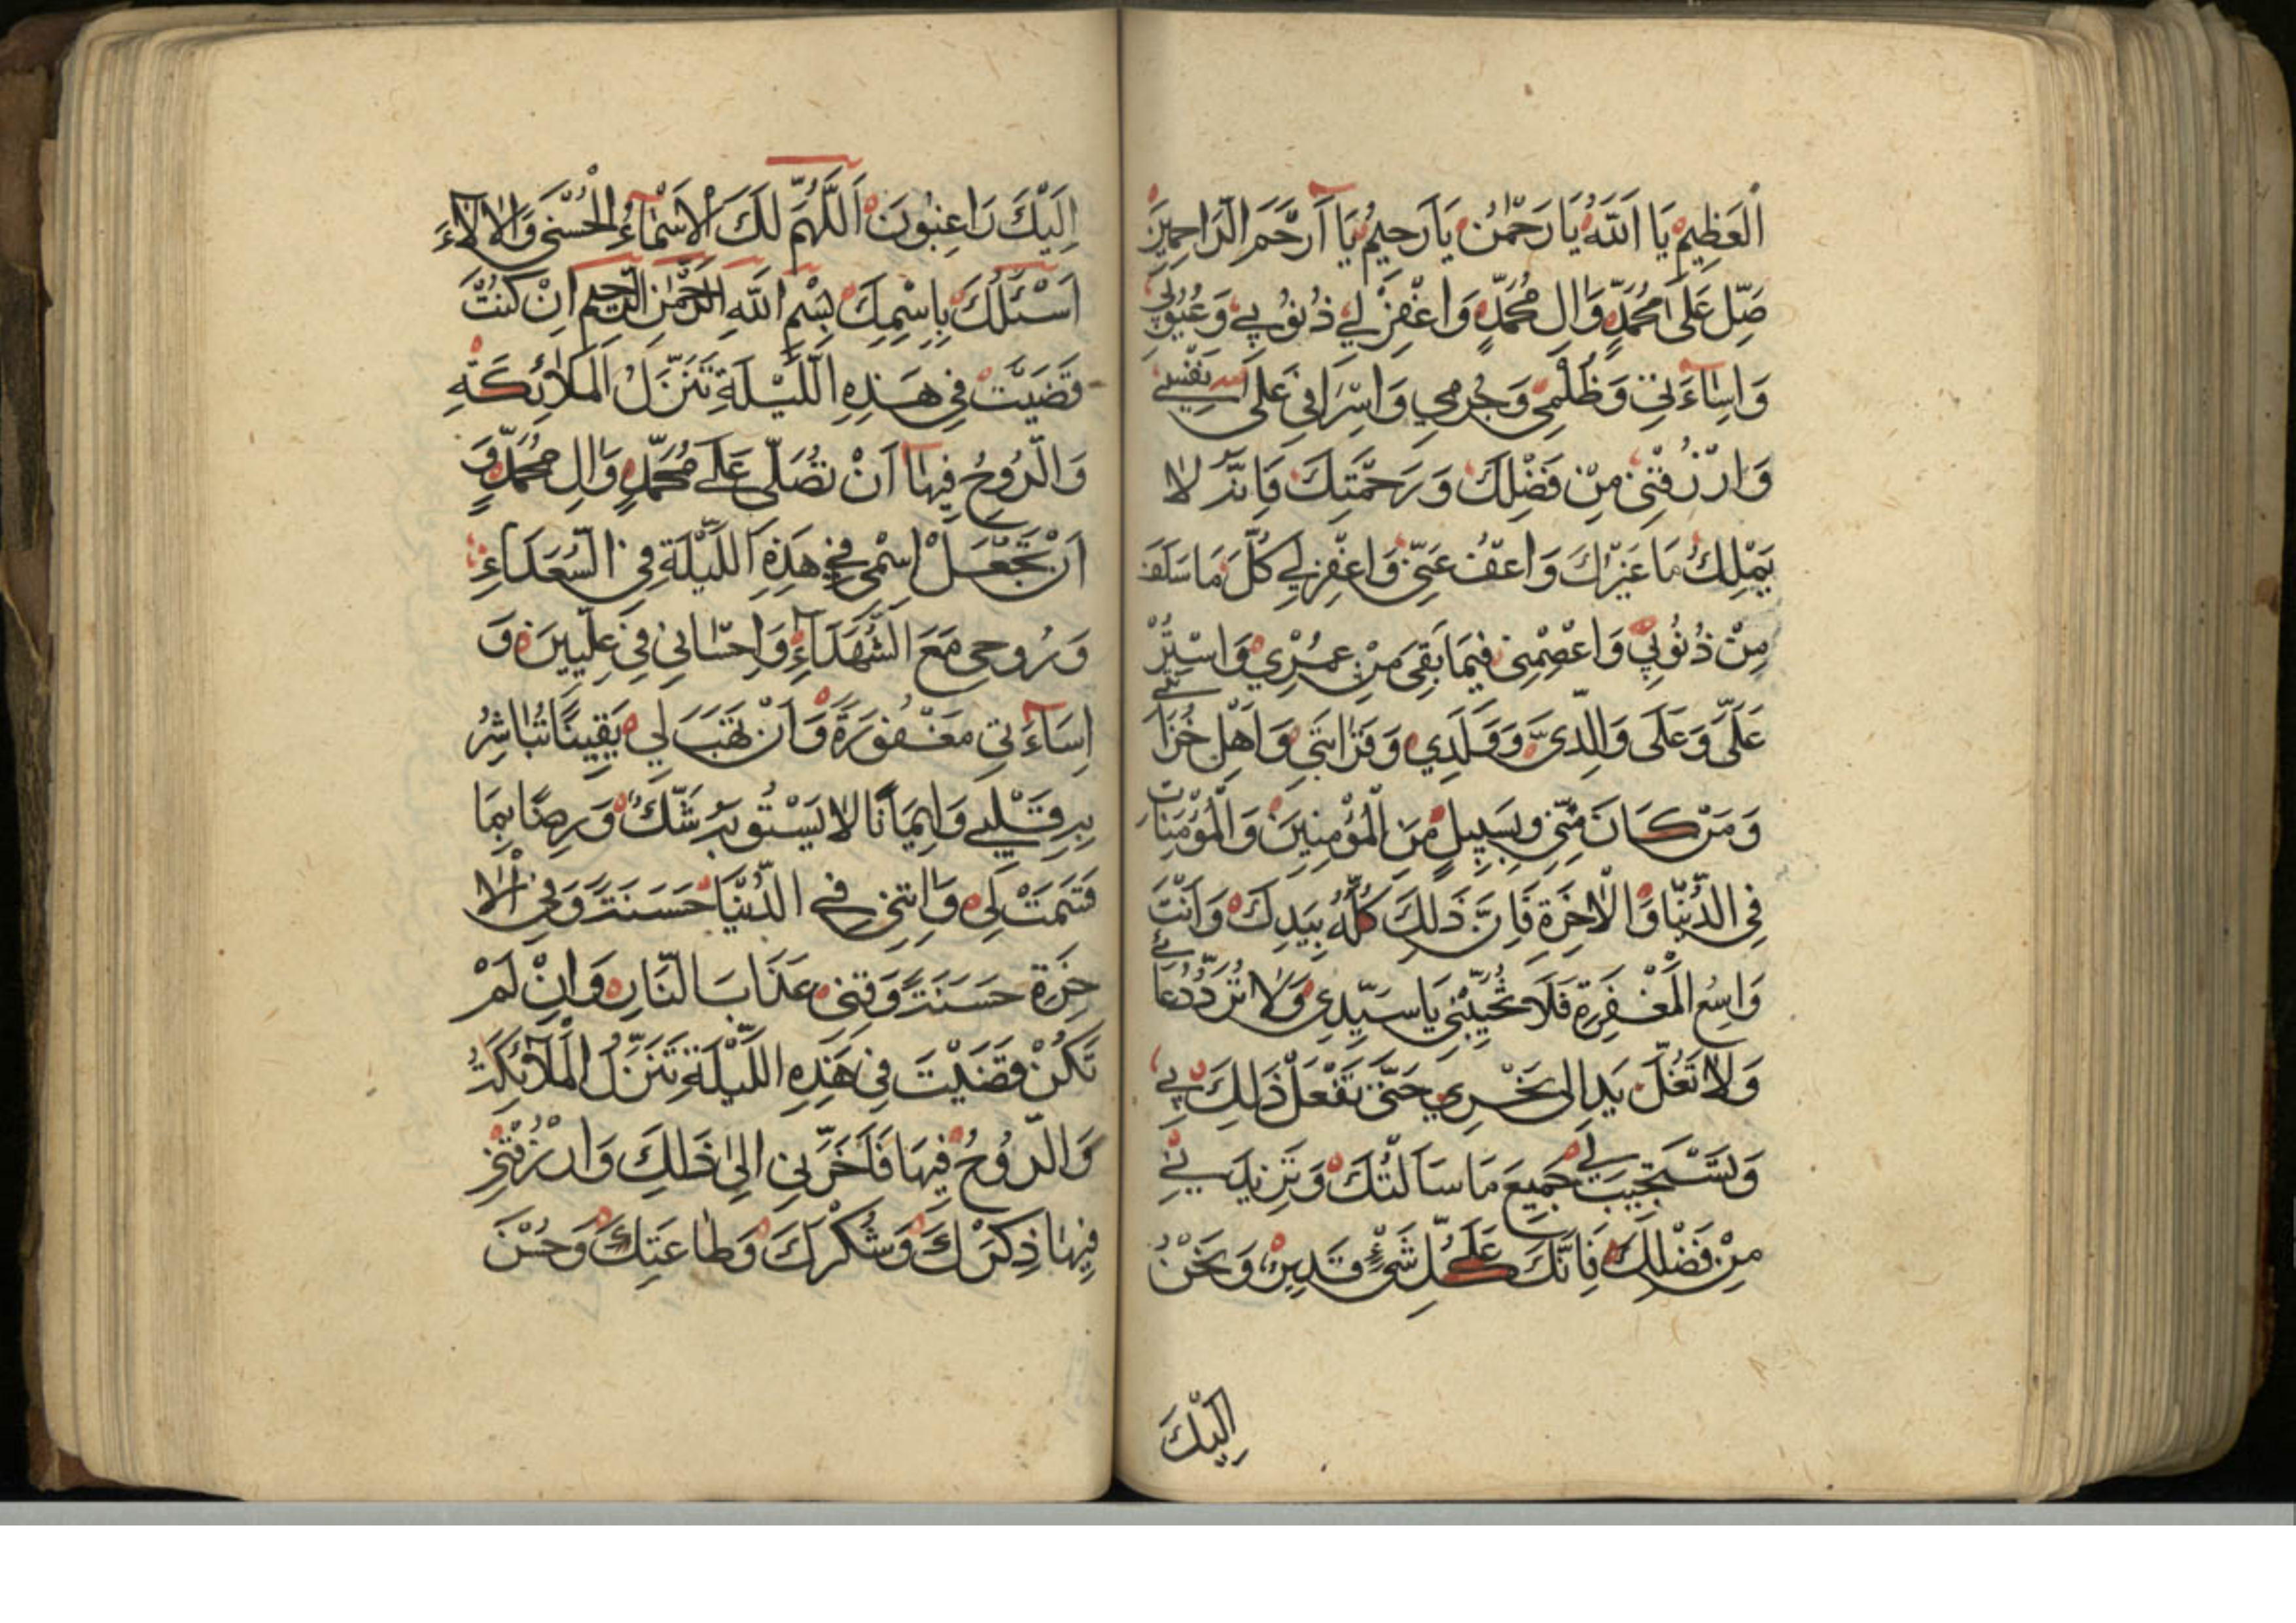 الْعَظِيمِ يَا اَللّٰهُ يَا رَحْمٰنُ يَا رَحِيمُ يَا اَرْحَمَ الرَّاحِمِينَ
صَلِّ عَلَى مُحَمَّدٍ وَاٰلِ مُحَمَّدٍ وَاغْفِرْ لِي ذُنُوبِي وَعُيُوبِي
وَاِسَاۤءَتِي وَظُلْمِي وَجُرْمِي وَاِسْرَافِي عَلَى نَفْسِي
وَارْزُقْنِي مِنْ فَضْلِكَ وَرَحْمَتِكَ فَاِنَّهُ لَا
يَمْلِكُ مَا غَيْرُكَ وَاعْفُ عَنِّي وَاغْفِرْ لِي كُلَّ مَا سَلَفَ
مِنْ ذُنُوبِي وَاعْصِمْنِي فِيمَا بَقِيَ مِنْ عُمْرِي وَاسْتُرْ
عَلَيَّ وَعَلَى وَالِدَيَّ وَوَلَدِي وَقَرَابَتِي وَاَهْلِ حُزَانَتِي
وَمَنْ كَانَ مِنِّي بِسَبِيلٍ مِنَ الْمُؤْمِنِينَ وَالْمُؤْمِنَاتِ
فِي الدُّنْيَا وَالْاٰخِرَةِ فَاِنَّ ذَلِكَ كُلَّهُ بِيَدِكَ وَاَنْتَ
وَاسِعُ الْمَغْفِرَةِ فَلَا تُخَيِّبْنِي يَا سَيِّدِي وَلَا تَرُدَّ دُعَائِي
وَلَا تَغُلَّ يَدِ اِلَى نَحْرِي حَتَّى تَفْعَلَ ذَلِكَ بِي
وَتَسْتَجِيبَ لِي جَمِيعَ مَا سَاَلْتُكَ وَتَزِيدَنِي
مِنْ فَضْلِكَ فَاِنَّكَ عَلَى كُلِّ شَيْءٍ قَدِيرٌ وَنَحْنُ
اِلَيْكَ
اِلَيْكَ رَاغِبُونَ اَللّٰهُمَّ لَكَ الْاَسْمَاۤءُ الْحُسْنَى وَالْاٰلَاۤءَ
اَسْئَلُكَ بِاِسْمِكَ بِسْمِ اللّٰهِ الرَّحْمٰنِ الرَّحِيمِ اِنْ كُنْتَ
قَضَيْتَ فِي هَذِهِ اللَّيْلَةِ تَنَزُّلَ الْمَلَائِكَةِ
وَالرُّوحُ فِيهَا اَنْ تُصَلِّيَ عَلَى مُحَمَّدٍ وَاٰلِ مُحَمَّدٍ وَ
اَنْ تَجْعَلَ اسْمِي فِي هَذِهِ اللَّيْلَةِ فِي السُّعَدَاءِ
وَرُوحِي مَعَ الشُّهَدَاۤءِ وَاِحْسَانِي فِي عِلِّيِّينَ وَ
اِسَاۤءَتِي مَغْفُورَةً وَاَنْ تَهَبَ لِي يَقِينًا تُبَاشِرُ
بِهِ قَلْبِي وَاِيمَانًا لَا يَسْتُوبُهُ شَكٌّ وَرِضًا بِمَا
قَسَمْتَ لِي وَاٰتِنِي فِي الدُّنْيَا حَسَنَةً وَفِي الْاٰ
خِرَةِ حَسَنَةً وَقِنِي عَذَابَ النَّارِ وَاِنْ لَمْ
تَكُنْ قَضَيْتَ فِي هَذِهِ اللَّيْلَةِ تَنَزُّلَ الْمَلَاۤئِكَةُ
وَالرُّوحُ فِيهَا فَاَخِّرْنِي اِلَى ذَلِكَ وَارْزُقْنِي
فِيهَا ذِكْرَكَ وَشُكْرَكَ وَطَاعَتِكَ وَحُسْنَ